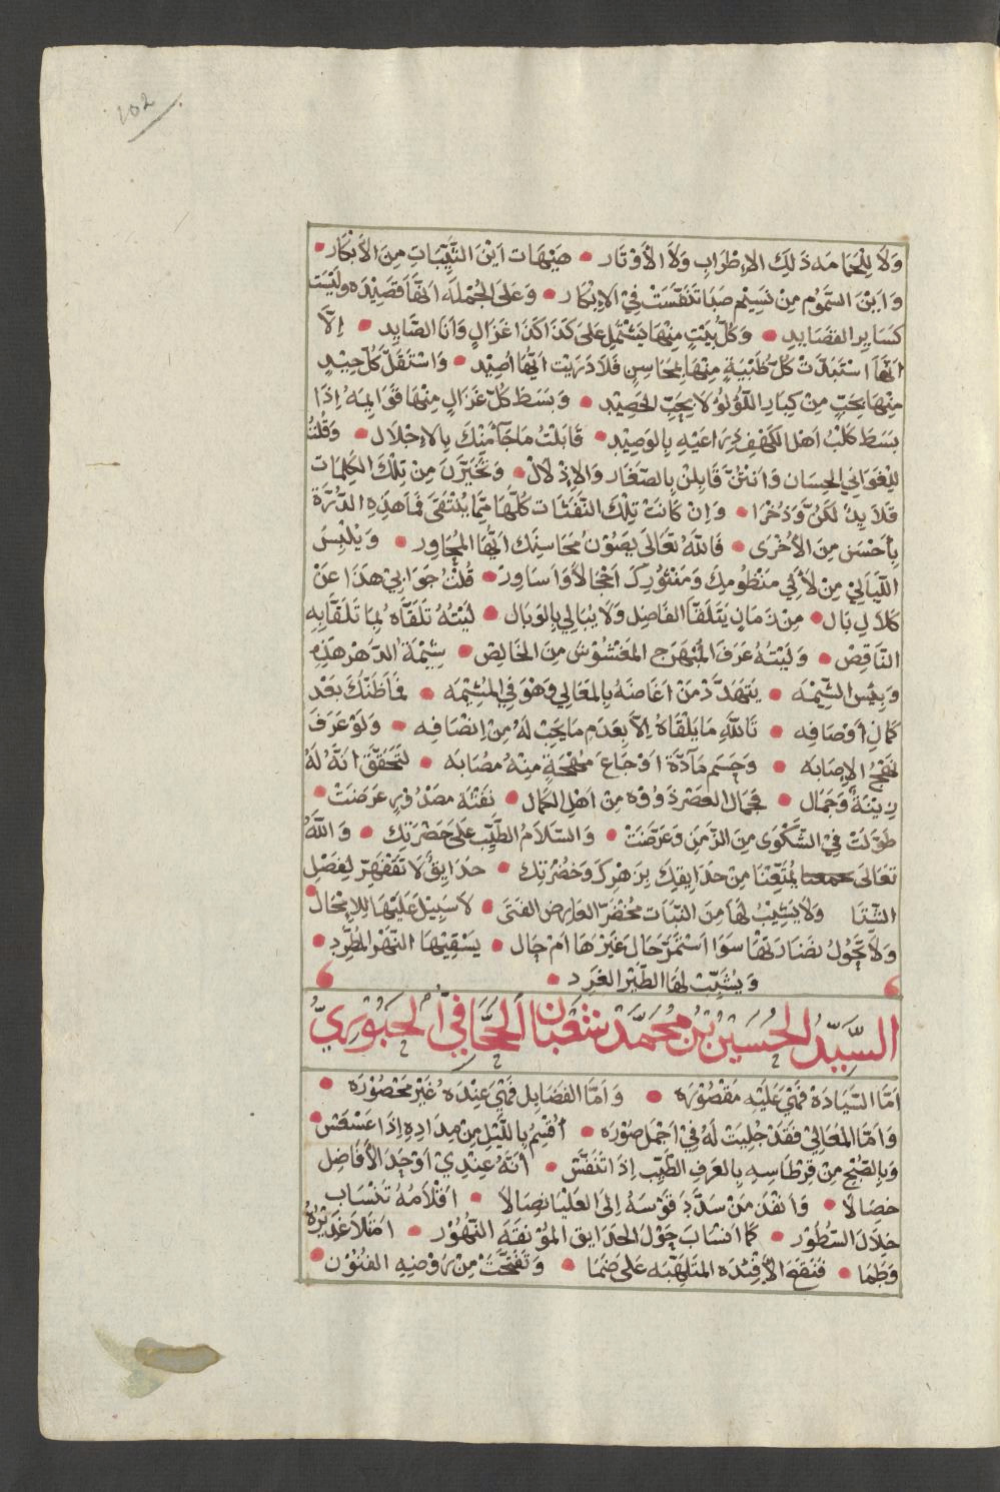 102
وَلَا لِلْحَمَامَه ذَلِكَ الاِطْرَابِ وَلَا الْأَوْتَار • هَيْهَات اَيْنَ الثَّيِّبَاتِ مِنَ الأَبْكَار •
وَاَيْنَ السَّمُوم مِنْ نَسِيْم صَبَا تَنَفَّسَتْ فِي الاِبْكَار • وَعَلَى الجُمْلَة اَنَّهَا قَصِيْدَه وليْسَت
كَسَايِر القصَايِد • وَكلّ بَيْتٍ مِنْهَا يَشْتَمِل عَلَى كَذَا كَذَا غزَالٍ وَانَا الصَّايِد • اِلَّا
اَنَّهَا اسْتَبَدّتْ كلّ ظَبْيَةٍ مِنْهَا بِمَحَاسِنٍ فَلَا دَرَيْت اَيّهَا اَصِيْد • وَاسْتَقَلّ كُلّ جِيْدٍ
مِنْهَا بِحَبٍّ مِنْ كِبَارِ اللُّؤلُؤ لَا بِحَبِّ الحَصِيْد • وَبَسَطَ كُلّ غزَالٍ مِنْهَا قَوَايِمَهُ اِذَا
بسَطَ كَلْبُ اَهْلِ الكَهْفِ ذِرَاعَيْهِ بِالوَصِيْدِ • قَابَلْتُ مَا جَآ مِنْكَ بِالاِجْلَال • وَقُلْتُ
لِلْغَوَانِي الحِسَان وَاَنْتُنّ قَابِلْنَ بِالصَّغَار وَالاِذْلَال • وَتَخَيَّرْنَ مِنْ تِلْكَ الكَلِمَات
قَلَايِدً لَكُنَّ وَذُخْرَا • وَاِنْ كَانَتْ تِلْكَ النَّفَثَات كلّهَا مِمَّا يُنْتَقَى فمَا هَذِهِ الدُّرَّة
بِأَحْسَن مِنَ الأُخْرَى • فَاللهُ تعَالَى يَصُوْن مَحَاسِنَك اَيّهَا المُجَاوِر • وَيُلْبِسُ
اللَّيَالِيْ مِنْ لَآلِي مَنْظُومِكَ وَمَنْثُوْرِكَ اَحْجَالًا وَاَسَاوِر • قُلْتُ جَوَابِيْ هَذَا عَنْ
كلَالِ بَال • مِنْ زَمَانٍ يَتَلَقَّا الفَاضِل وَلَا يُبَالِي بِالوَبَال • لَيْتَهُ تَلَقَّاه بِمَا تَلَقَّا بِه
النَّاقِصْ • وَلَيْتَهُ عَرَفَ المُبَهْرَج المَغْشُوْش مِنَ الخَالِصْ • شِيْمَة الدَّهْر هَذِهِ
وَبِئْسَ الشِّيْمَه • يَتَهَدَّدْ مَنْ اَغَاضَهُ بِالمَعَالِي وَهْوَ فِي المَشِيْمَه • فمَا ظَنّكَ بَعْد
كَمَالِ أَوْصَافِه • تَاللهِ مَا يَلْقَاهُ اِلَّا بِعَدَم مَا يَجِبْ لَهُ مِنْ اِنْصَافِه • وَلَوْ عَرَفَ
نَهْج الاِصَابَه • وَحَسَم مَآدّة اَوْجَاع مُهْجَةٍ مِنْهُ مُصَابَه • لَتَحَقَّقَ اَنَّهُ لَهُ
زِيْنَةٌ وَجَمَال • فَجَمَال العَصْر ذَوُوْهُ مِنْ اَهْلِ الكَمَال • نَفثَه مَصْدُوْرٍ عَرَضَتْ •
طَوَّلَتْ فِيْ الشَّكْوَى مِنَ الزَّمَنِ وَعَرَّضَتْ • وَالسَّلَامُ الطَّيِّب عَلَى حَضْرَتِك • وَاللهُ
تعَالَى يُمَتِّعنَا مِنْ حَدَايِقِكَ بِزَهْرِكَ وَخضْرَتِك • حَدَايِقٌ لَا تَقْهَرّ لِفَصْلِ
الشّتَا وَلَا يَشِيْبُ لهَا مِنَ النّبَات مُخْضَرّ العَارِض الفَتَى • لَا سَبِيْل عَلَيْهَا لِلإِمْحَال •
وَلَا يَحُوْل نضَارَتهَا سَوَا اسْتَمَرّ حَال غَيْرهَا اَمْ حَال • يَسْقِيْهَا النّهَر المُطَّرِد •
وَيُشَبِّب لهَا الطَّيْر الغَرِد •
السَّيِّدُ الحُسَيْنُ بْنُ مُحَمَّد شَعْبَان الجَحَّافِيّ الحَبُوْرِيُّ
اَمَّا السِّيَادَة فَهْيَ عَلَيْهِ مَقْصُوْرَه • وَاَمَّا الفَضَايِل فَهْيَ عِنْدَهُ غَيْر مَحْصُوْرَه •
وَاَمَّا المَعَالِيْ فقَدْ جُلِيَتْ لَهُ فِيْ اَجْمَل صُوْرَه • اُقْسِمُ بِاللَّيْلِ مِنْ مِدَادِهِ اِذَا عَسْعَسْ •
وَبِالصُّبْحِ مِنْ قِرْطَاسِهِ بِالعَرفِ الطَّيِّبِ اِذَا تَنَفَّسْ • اَنَّهُ عِنْدِيْ اَوْحَدُ الأَفَاضِل
خصَالًا • وَاَنْقَدُ مَنْ سَدَّدَ قَوْسَهُ اِلَى العَلْيَا نِصَالًا • اَقْلَامُهُ تَنْسَابِ
خِلَالَ السُّطُوْر • كمَا انْسَابَ حَوْلَ الحَدَايِق المُوْنقَةِ النُّهُوْر • امْتَلَا غَدِيْرُهُ
وَطَمَا • فنَقَعَ الأَفْئِدَه المتَلَهِّبَه عَلَى ظَمَا • وَتَفَتَّحَتْ مِنْ رَوْضِهِ الفُنُوْن •